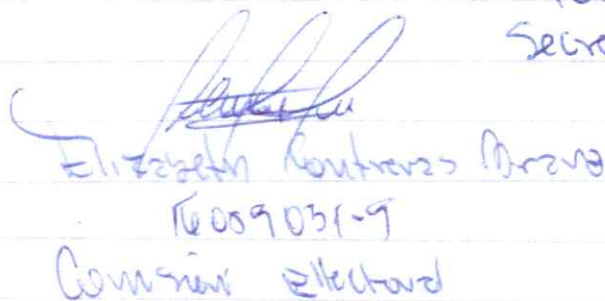 Secre
Elizabeth Contreras Bravo
16009031-9
Comisión Electoral